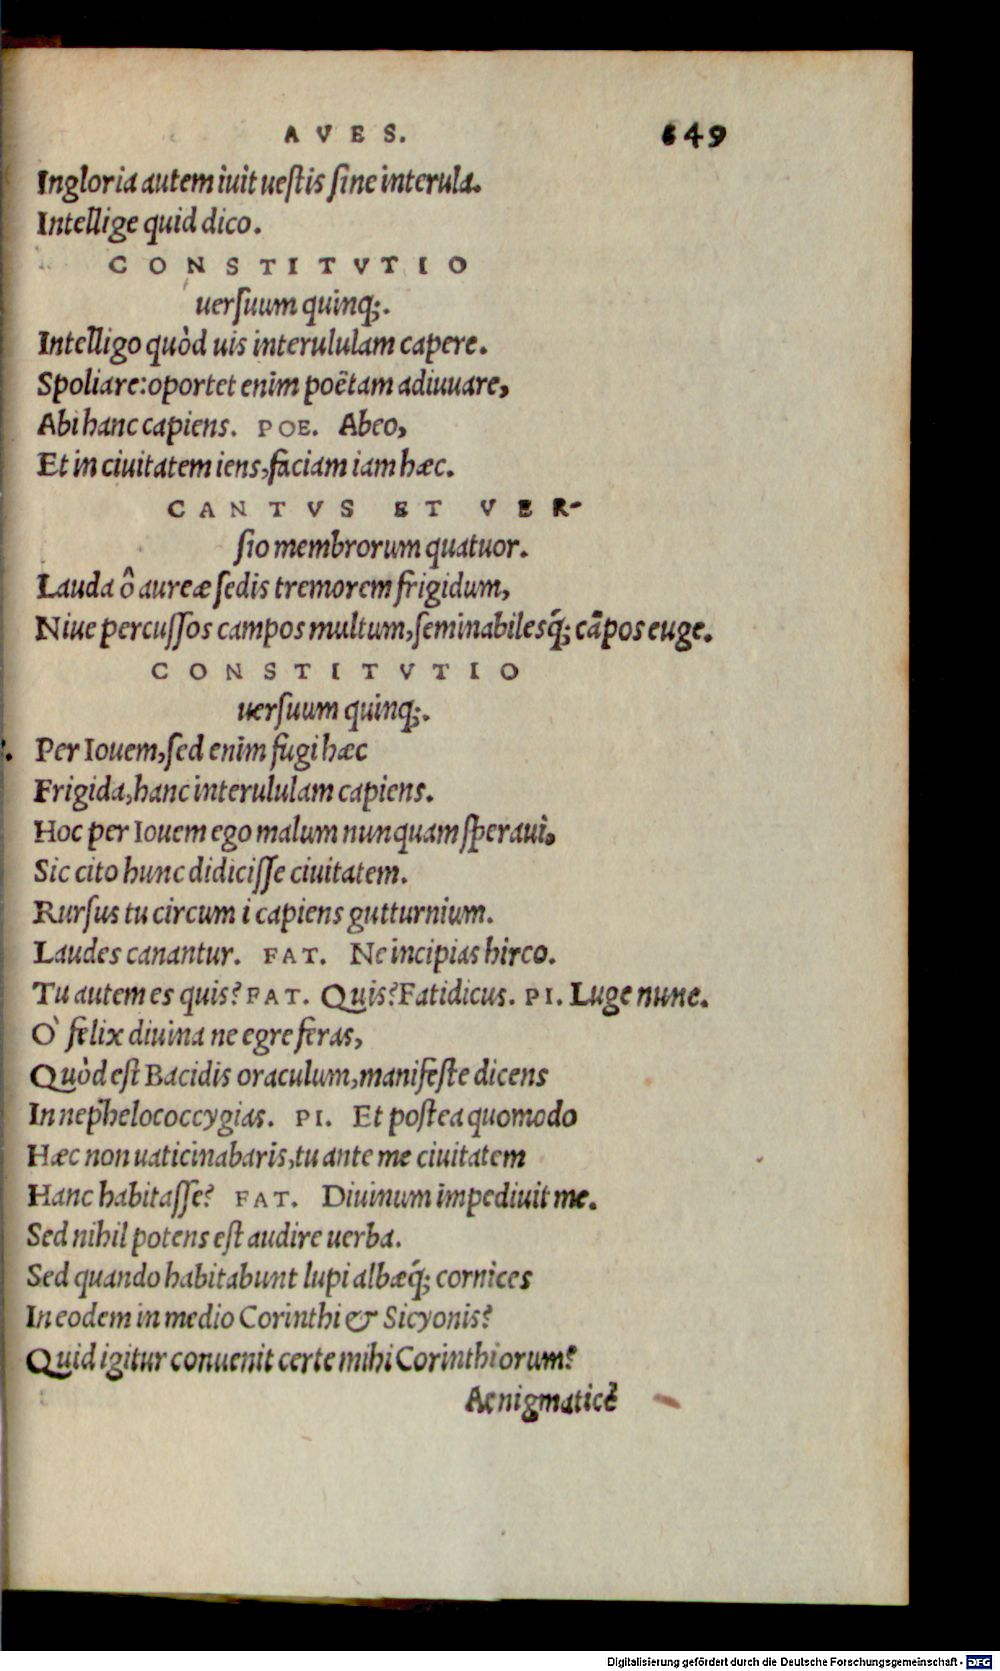 AVES. 649
Ingloria autem iuit uestis sine interula.
Intellige quid dico.
CONSTITVTIO
uersuum quinq;.
Intelligo quòd uis interululam capere.
Spoliare:oportet enim poëtam adiuuare,
Abi hanc capiens. POE. Abeo,
Et in ciuitatem iens,faciam iam hæc.
CANTVS ET VER-
sio membrorum quatuor.
Lauda ô aureæ sedis tremorem frigidum,
Niue percussos campos multum,seminabilesq́; cãpos euge.
CONSTITVTIO
uersuum quinq;.
Per Iouem,sed enim fugi hæc
Frigida,hanc interululam capiens.
Hoc per Iouem ego malum nunquam speraui,
Sic cito hunc didicisse ciuitatem.
Rursus tu circum i capiens gutturnium.
Laudes canantur. FAT. Ne incipias hirco.
Tu autem es quis? FAT. Quis?Fatidicus. PI. Luge nunc.
O` felix diuina ne egre feras,
Quòd est Bacidis oraculum,manifeste dicens
In nephelococcygias. PI. Et postea quomodo
Hæc non uaticinabaris,tu ante me ciuitatem
Hanc habitasse? FAT. Diuinum impediuit me.
Sed nihil potens est audire uerba.
Sed quando habitabunt lupi albæq́; cornices
In eodem in medio Corinthi & Sicyonis?
Quid igitur conuenit certe mihi Corinthiorum?
Aenigmaticè
Digitalisierung gefördert durch die Deutsche Forschungsgemeinschaft - DFG